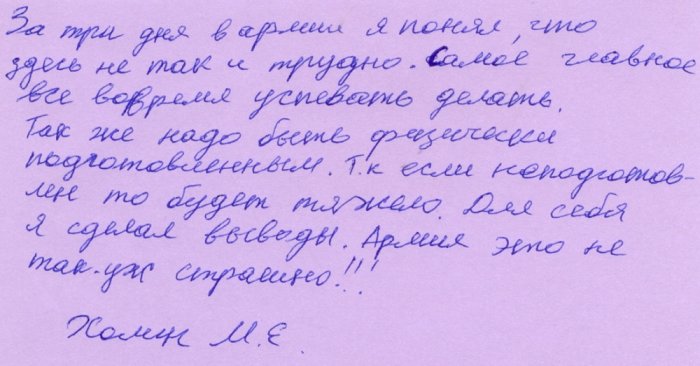 За три дня в армии я понял, что
здесь не так и трудно. Самое главное
все вовремя успевать делать.
Так же надо быть физически
подготовленным. Т.к если неподготов-
лен то будет тяжело. Для себя
я сделал выводы. Армия это не
так-уж страшно!!!
Хомин М.Е.